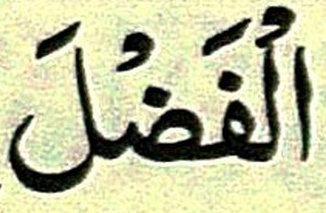 الْفَضْلَ